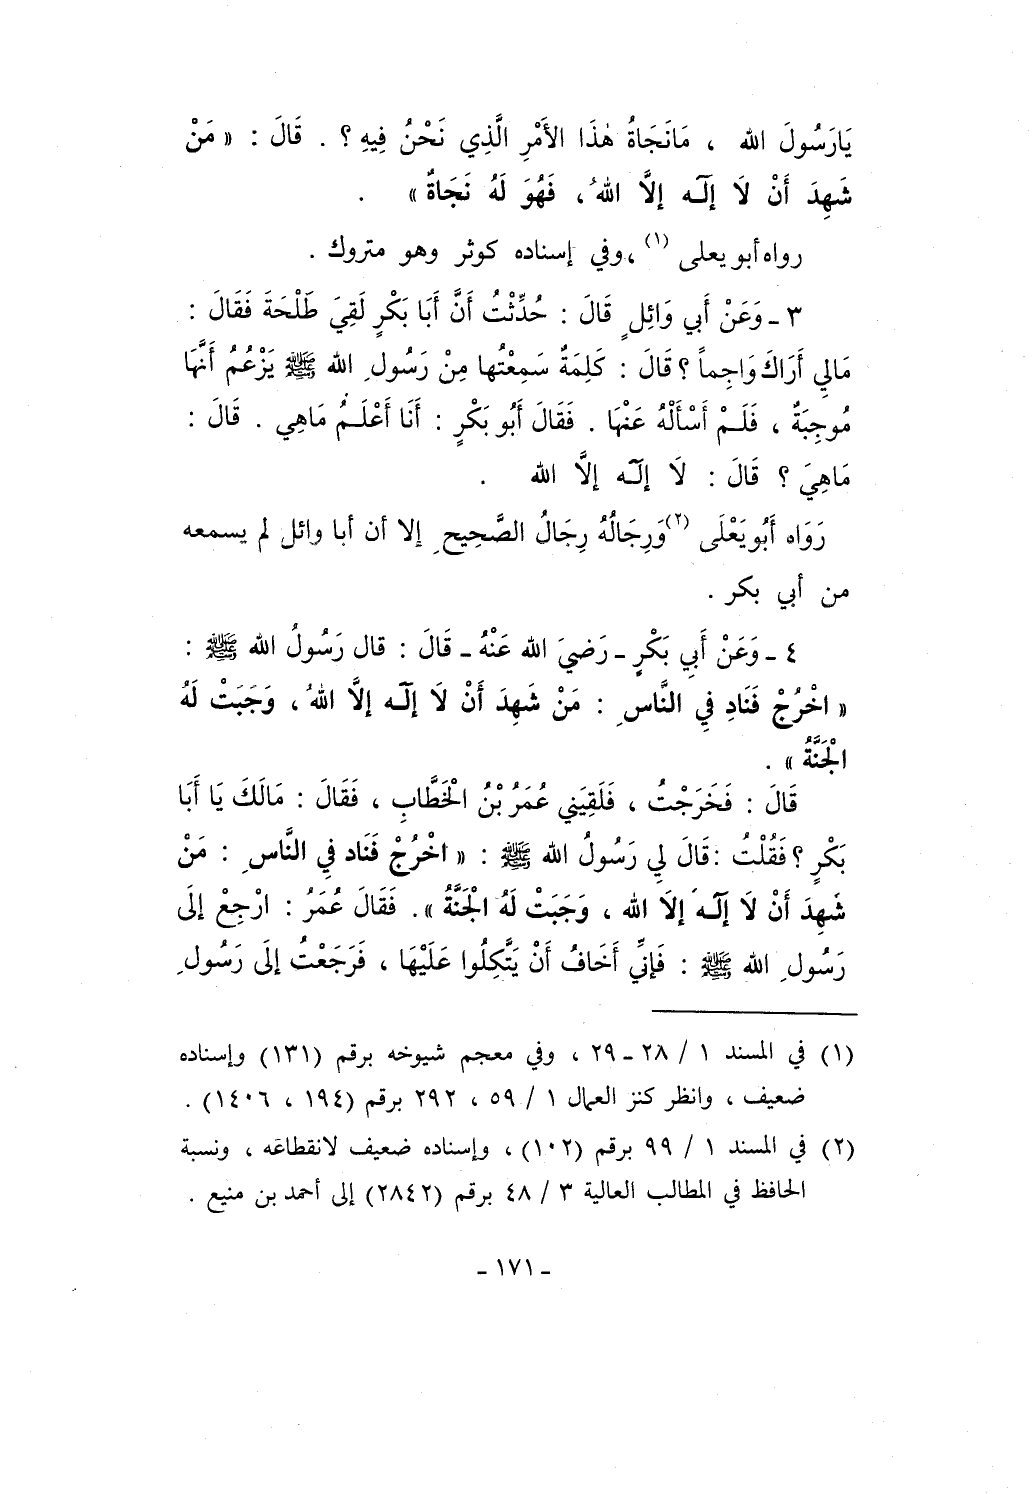 يَارَسُولَ الله ، مَانَجَاةُ هٰذَا الأَمْرِ الَّذِي نَحْنُ فِيهِ ؟ . قَالَ : « مَنْ
شَهِدَ أَنْ لَا إِلَـٰه إِلَّا اللهُ ، فَهُوَ لَهُ نَجَاةٌ » .
رواه أبو يعلى (١) ، وفي إسناده كوثر وهو متروك .
٣ ـ وَعَنْ أَبي وَائِلٍ قَالَ : حُدِّثْتُ أَنَّ أَبَا بَكْرٍ لَقِيَ طَلْحَةَ فَقَالَ :
مَالي أَرَاكَ وَاجِماً ؟ قَالَ : كَلِمَةٌ سَمِعْتُها مِنْ رَسُولِ الله ﷺ يَزْعُمُ أَنَّهَا
مُوجِبَةٌ ، فَلَـمْ أَسْأَلْهُ عَنْهَا . فَقَالَ أَبُو بَكْرٍ : أَنَا أَعْلَـمُ مَاهِي . قَالَ :
مَاهِيَ ؟ قَالَ : لَا إِلَـٰه إِلَّا الله .
رَوَاه أَبُو يَعْلَى (٢) وَرِجَالُهُ رِجَالُ الصَّحِيحِ إلا أن أبا وائل لم يسمعه
من أبي بكر .
٤ ـ وَعَنْ أَبِي بَكْرٍ ـ رَضِيَ الله عَنْهُ ـ قَالَ : قال رَسُولُ الله ﷺ :
« اخْرُجْ فَنَادِ فِي النَّاسِ : مَنْ شَهِدَ أَنْ لَا إِلَـٰه إِلَّا اللهُ ، وَجَبَتْ لَهُ
الْجَنَّةُ » .
قَالَ : فَخَرَجْتُ ، فَلَقِيَني عُمَرُ بْنُ الْخَطَّابِ ، فَقَالَ : مَالَكَ يَا أَبَا
بَكْرٍ ؟ فَقُلْتُ : قَالَ لِي رَسُولُ الله ﷺ : « اخْرُجْ فَنَاد فِي النَّاسِ : مَنْ
شَهِدَ أَنْ لَا إِلَـٰهَ إلَا الله ، وَجَبَتْ لَهُ الْجَنَّةُ » . فَقَالَ عُمَرُ : ارْجِعْ إلَى
رَسُولِ الله ﷺ : فَإنِّي أَخَافُ أَنْ يَتَّكِلُوا عَلَيْهَا ، فَرَجَعْتُ إلَى رَسُولِ
(١) في المسند ١ / ٢٨ ـ ٢٩ ، وفي معجم شيوخه برقم (١٣١) وإسناده
ضعيف ، وانظر كنز العمال ١ / ٥٩ ، ٢٩٢ برقم (١٩٤ ، ١٤٠٦) .
(٢) في المسند ١ / ٩٩ برقم (١٠٢) ، وإسناده ضعيف لانقطاعه ، ونسبة
الحافظ في المطالب العالية ٣ / ٤٨ برقم (٢٨٤٢) إلى أحمد بن منيع .
ـ ١٧١ ـ